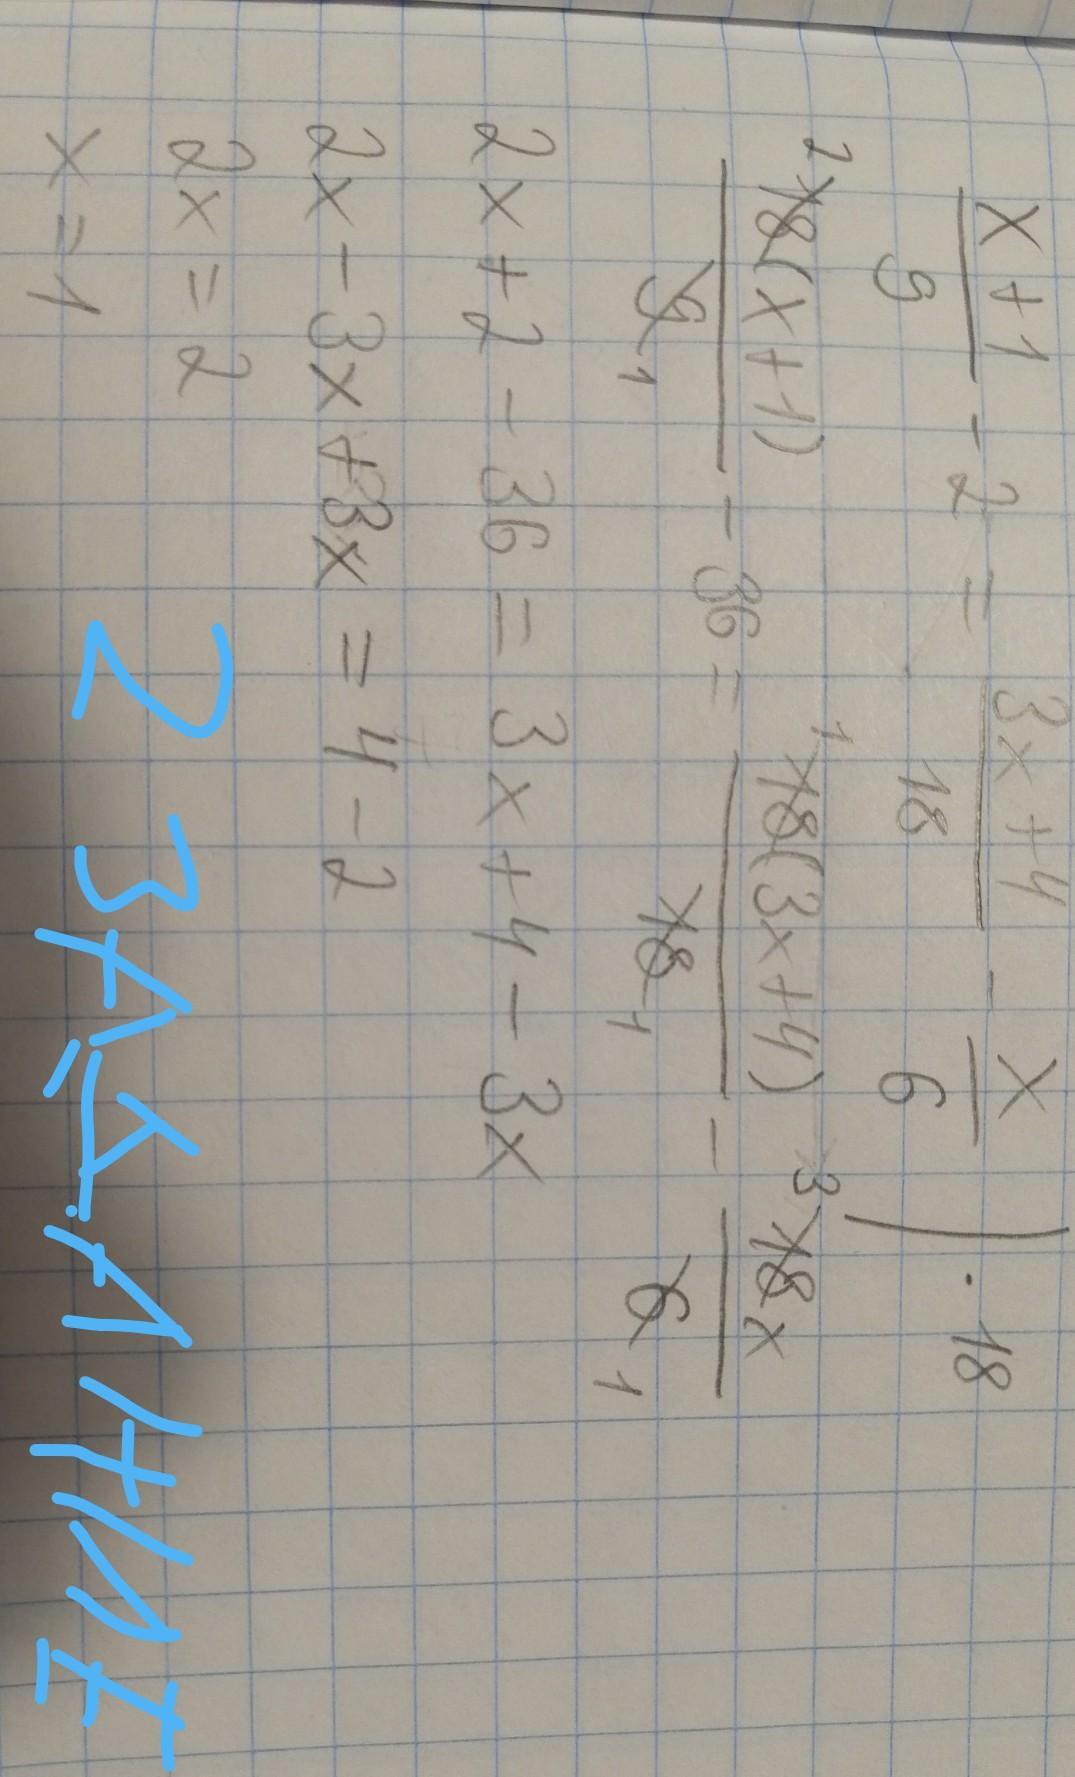 x+1/9 - 2 = 3x+4/18 - x/6 ) · 18
2 18(x+1)/9 1 - 36 = 1 18(3x+4)/18 1 - 3 18x/6 1
2x + 2 - 36 = 3x + 4 - 3x
2x - 3x + 3x = 4 - 2
2x = 2
x = 1
2 ЗАДАНИЕ